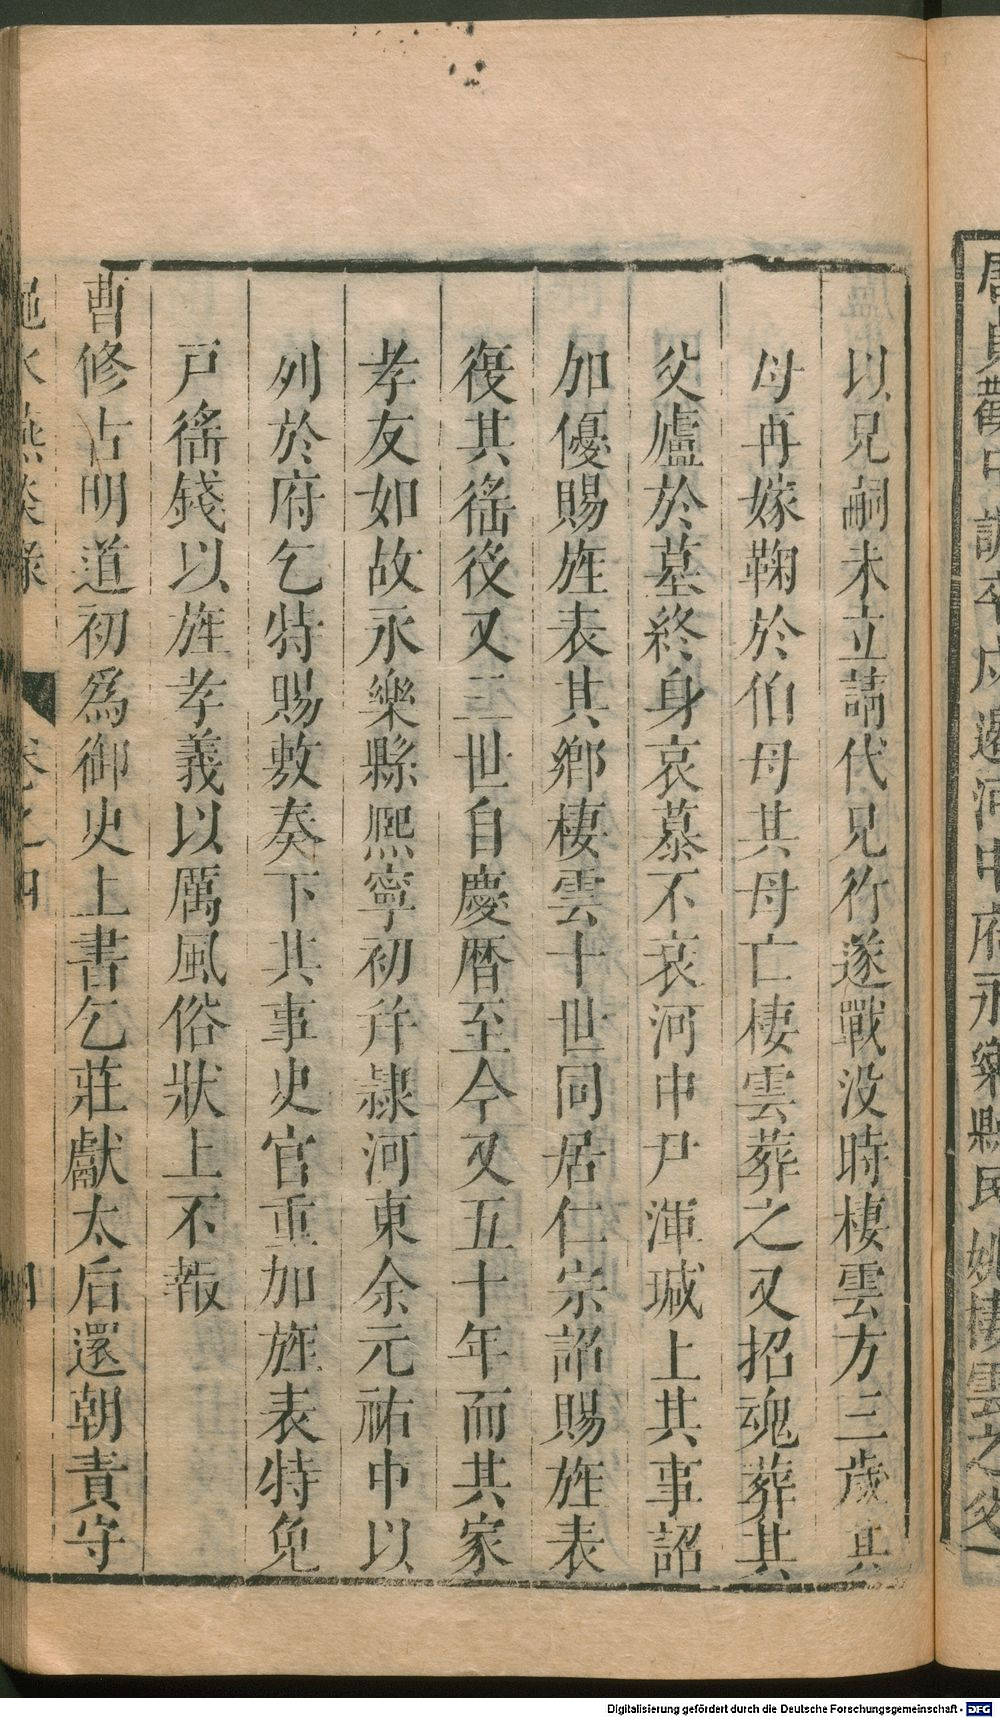 唐貞觀中詔卒戍邊河中府永樂縣民姚棲雲之父
以兄嗣未立請代兄行遂戰没時棲雲方三歲其
母再嫁鞠於伯母其母亡棲雲葬之又招魂葬其
父廬於墓終身哀慕不衰河中尹渾瑊上其事詔
加優賜旌表其鄉棲雲十世同居仁宗詔賜旌表
復其徭役又三世自慶曆至今又五十年而其家
孝友如故永樂縣熈寧初并隷河東余元祐中以
列於府乞特賜敷奏下其事史官重加旌表特免
戸徭錢以旌孝義以厲風俗狀上不報
曹修古明道初爲御史上書乞莊獻太后還朝責守
澠水燕談錄 卷之四 四
Digitalisierung gefördert durch die Deutsche Forschungsgemeinschaft - DFG